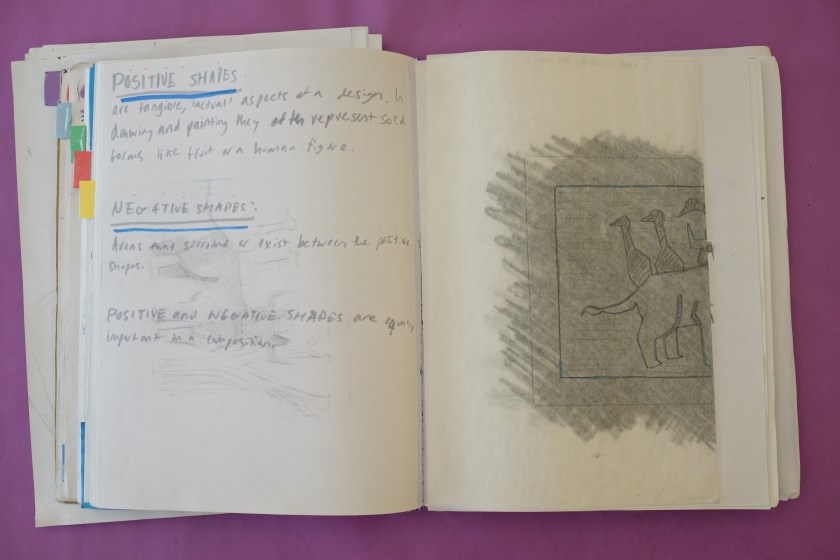 POSITIVE SHAPES:
are tangible, 'actual' aspects of a design. In
drawing and painting they often represent solid
forms like fruit or a human figure.
NEGATIVE SHAPES:
Areas that surround or exist between the positive
shapes.
POSITIVE and NEGATIVE SHAPES are equally
important in a composition.